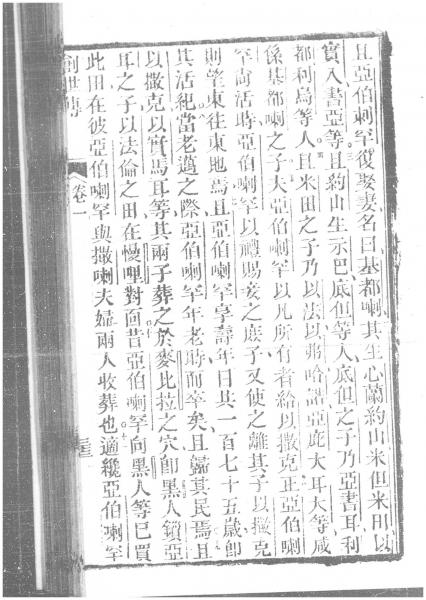 且亞伯喇罕復娶妻名曰基都喇其生心蘭約山米但米田以
實入書亞等且約山生示巴底但等人底但之子乃亞書耳利
都利烏等人且米田之子乃以法以弗哈諾亞庇大耳大等咸
係基都喇之子大亞伯喇罕以凡所有者給以撒克正亞伯喇
罕尚活時亞伯喇罕以禮賜妾之庶子又使之離其子以撒克
則望東往東地焉且亞伯喇罕享壽年日共一百七十五歲卽
其活紀當老邁之際亞伯喇罕年老時而卒矣且歸其民焉且
以撒克以實馬耳等其兩子葬之於麥比拉之穴卽黑人鎖亞
耳之子以法倫之田在慢哩對面昔亞伯喇罕向黑人等已買
此田在彼亞伯喇罕與撒喇夫婦兩人收葬也適纔亞伯喇罕
創世傳
卷一
三